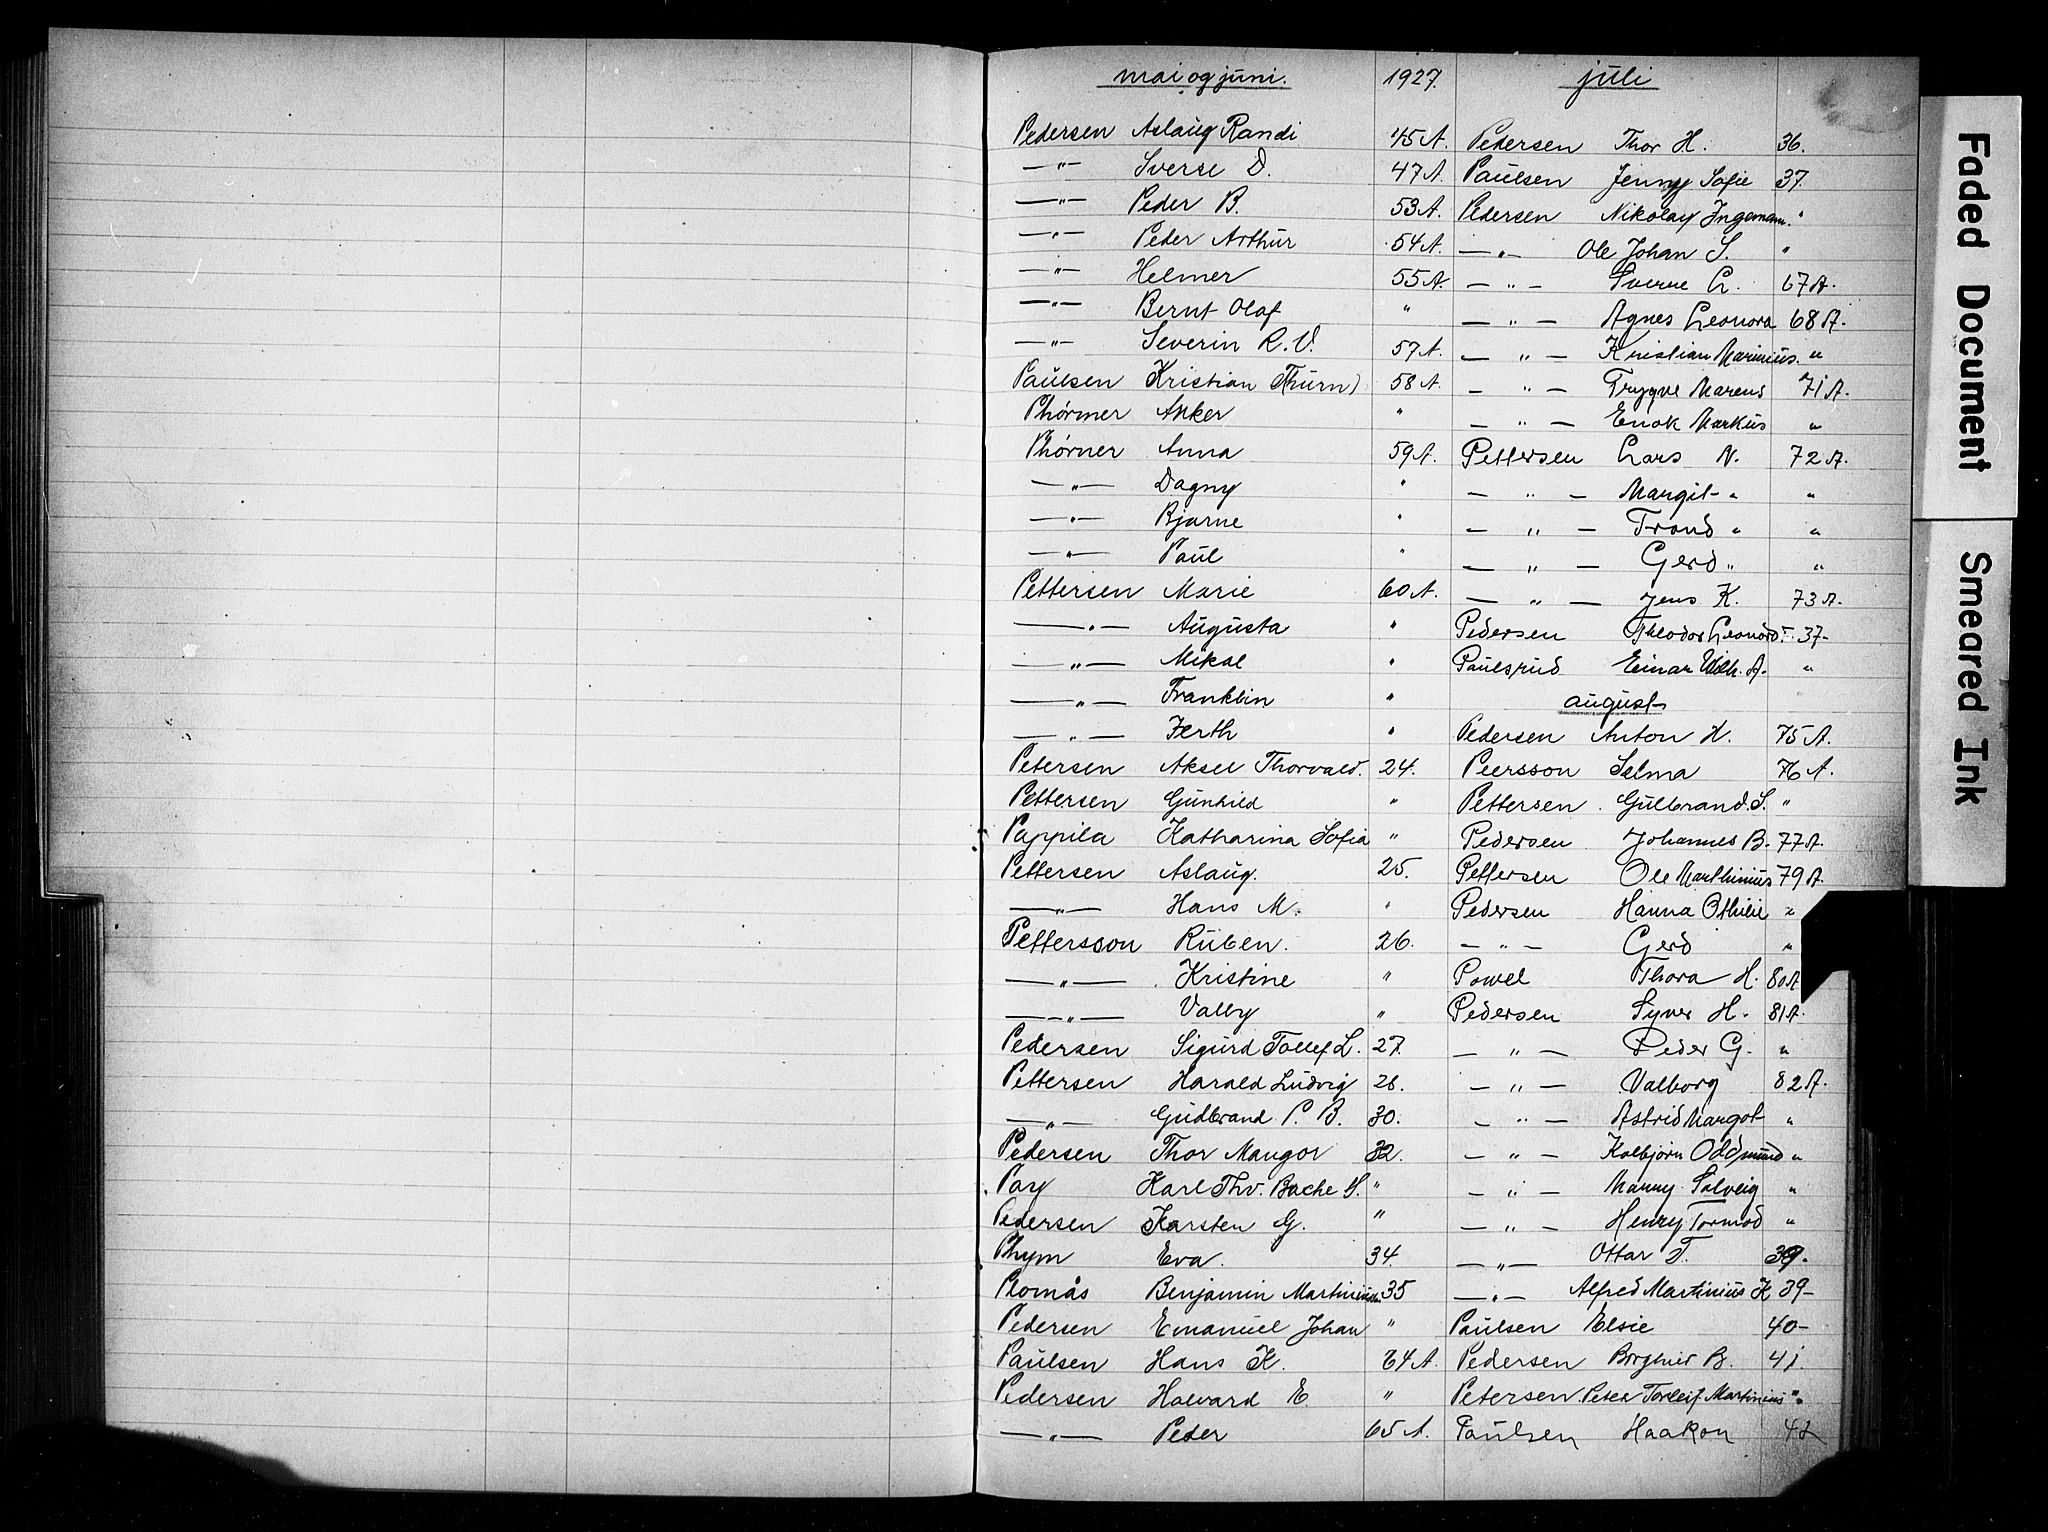 mai og juni. 1927.
Pedersen Aslaug Randi 45 A.
—"— Sverse D. 47 A.
—"— Peder B. 53 A.
—"— Peder Arthur 54 A.
—"— Helmer 55 A.
—"— Bernt Olaf "
—"— Severin R. V. 57 A.
Paulsen Kristian (Thurn) 58 A.
Phørmer Anker "
Phørner Anna 59 A.
—"— Dagny "
—"— Bjarne "
—"— Paul "
Pettersen Marie 60 A.
—"— Augusta "
—"— Mikal "
—"— Franklin "
—"— Jerth "
Petersen Aksel Thorvald. 24.
Pettersen Gunhild "
Pappila Katharina Sofia "
Pettersen Aslaug. 25.
—"— Hans M. "
Pettersson Ruben. 26.
—"— Kristine "
—"— Valby "
Pedersen Sigurd Tollef L. 27.
Pettersen Harald Ludvig 28.
—"— Gudbrand P. B. 30.
Pedersen Thor Mangor 32.
Pay Karl Thv. Bache S. "
Pedersen Karsten G. "
Phym Eva. 34.
Plomås Benjamin 35
Pedersen Emanuel Johan "
Paulsen Hans K. 64 A.
Pedersen Halvard E. "
—"— Peder 65 A.
juli
Pedersen Thor H. 36.
Paulsen Jenny Sofie 37.
Pedersen Nikolay Ingemann. "
—"— Ole Johan S. "
—"— Sverre L. 67 A.
—"— Agnes Leonora 68 A.
—"— Kristian Marinius. "
—"— Trygve Marens 71 A.
—"— Enok Markus "
Pettersen Lars N. 72 A.
—"— Margit " "
—"— Trond " "
—"— Gerd " "
—"— Jens K. 73 A.
Pedersen Theodor Leonard T. 37-
Paulsrud Einar Wilh. A. "
august
Pedersen Anton H. 75 A.
Peersson Selma 76 A.
Pettersen Gulbrand. S. "
Pedersen Johannes B. 77 A.
Pettersen Ole Marthinius 79 A.
Pedersen Hanna Othilie "
—"— Gerd "
Powel Thora H. 80 A
Pedersen Syver H. 81 A.
—"— Peder G. "
—"— Valborg 82 A.
—"— Astrid Margot "
—"— Kolbjørn Oddmund "
—"— Manny Solveig "
—"— Henry Tormod "
—"— Ottar T. 39.
—"— Alfred Martinius K 39-
Paulsen Elsie 40-
Pedersen Borghild B. 41
Petersen Peter Torleif Martinius "
Paulsen Haakon 42
Faded Document
Smeared Ink